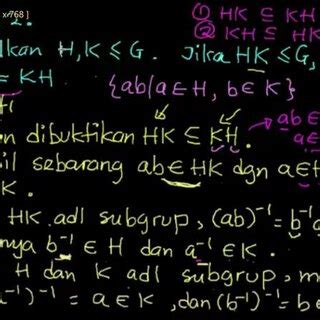 xr768 ]
2.
① HK ⊆ KH
② KH ⊆ HK
lkan H, K ≤ G. Jika HK ≤ G,
= KH
{ab|a∈H, b∈K}
ti
n dibuktikan HK ⊆ KH.
ab ∈
a ∈
il sebarang ab ∈ HK dgn a∈H
K.
HK adl subgrup, (ab)⁻¹ = b⁻¹a
nya b⁻¹ ∈ H dan a⁻¹ ∈ K.
H dan K adl subgrup, m
a⁻¹)⁻¹ = a ∈ K, dan (b⁻¹)⁻¹ = b ∈